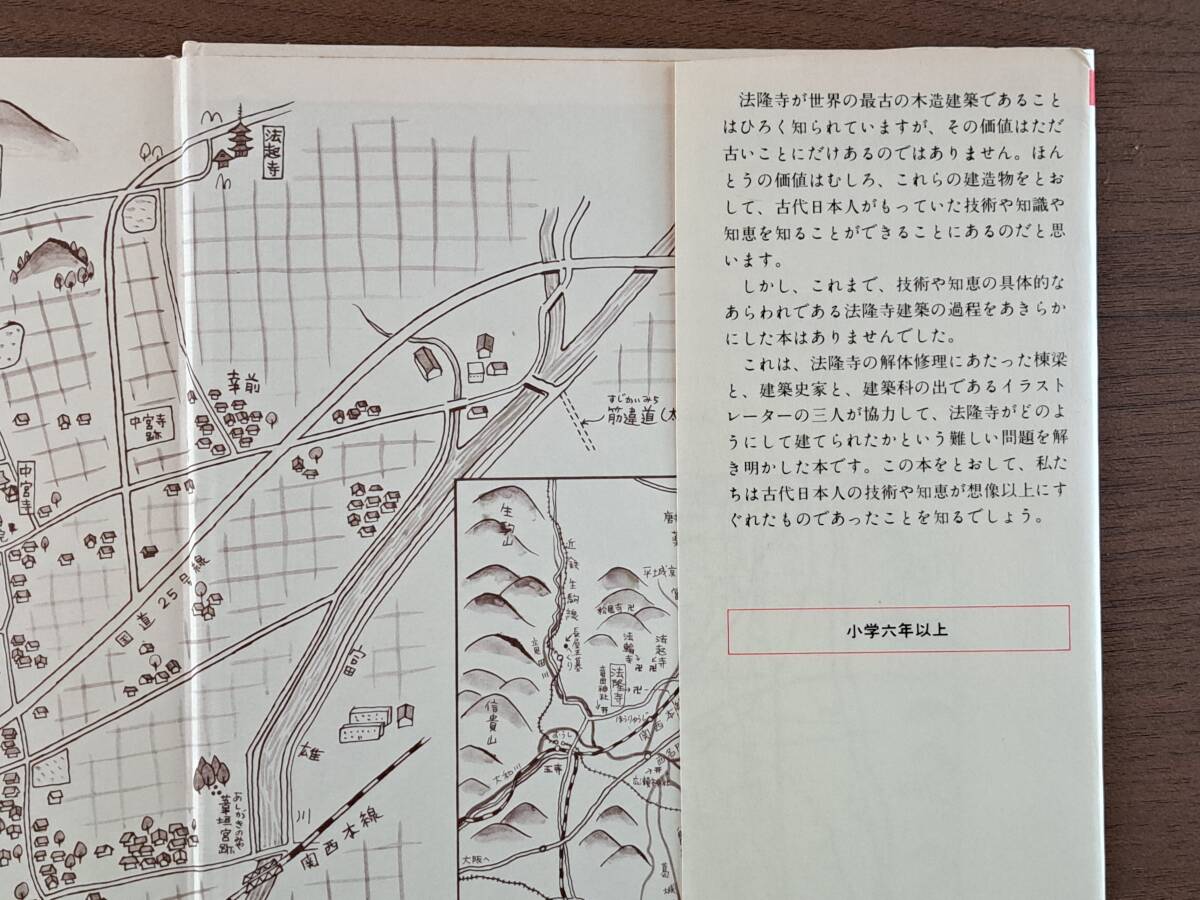 法隆寺が世界の最古の木造建築であること
はひろく知られていますが、その価値はただ
古いことにだけあるのではありません。ほん
とうの価値はむしろ、これらの建造物をとお
して、古代日本人がもっていた技術や知識や
知恵を知ることができることにあるのだと思
います。
しかし、これまで、技術や知恵の具体的な
あらわれである法隆寺建築の過程をあきらか
にした本はありませんでした。
これは、法隆寺の解体修理にあたった棟梁
と、建築史家と、建築科の出であるイラスト
レーターの三人が協力して、法隆寺がどのよ
うにして建てられたかという難しい問題を解
き明かした本です。この本をとおして、私た
ちは古代日本人の技術や知恵が想像以上にす
ぐれたものであったことを知るでしょう。
小学六年以上
法起寺
幸前
中宮寺
跡
中宮寺
すじかいみち
筋違道
国道25号線
富雄川
あしがきのみや
葦垣宮跡
関西本線
生駒山
近鉄生駒線
平城京
松尾寺
長屋王墓
竜田川
法輪寺
法起寺
法隆寺
竜田神社
ほうりゅうじ
関西本
信貴山
おうじ
王寺
大和川
広瀬神社
大阪へ
葛城